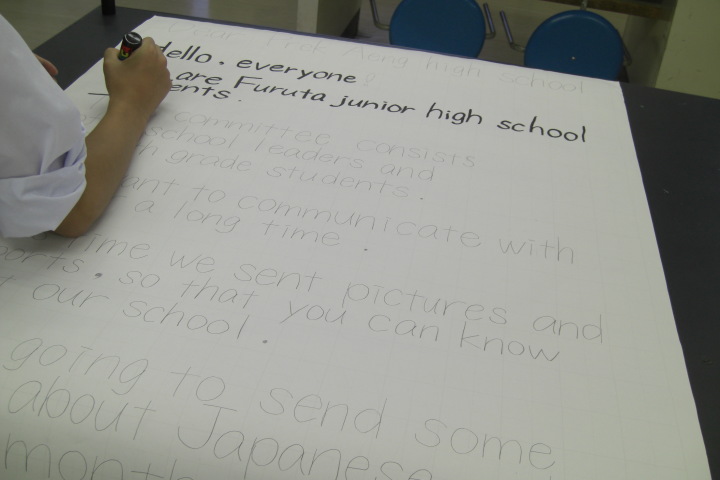 high school
Hello. everyone
are Furuta junior high school
committee consists
school leaders and
grade students.
to communicate with
a long time.
time we sent pictures and
so that you can know
our school.
going to send some
about Japanese